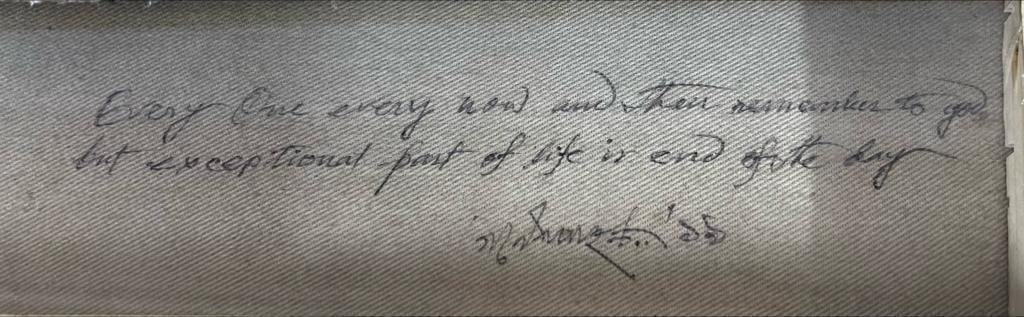 Every One every now and then remember to god
but exceptional part of life is end of the day